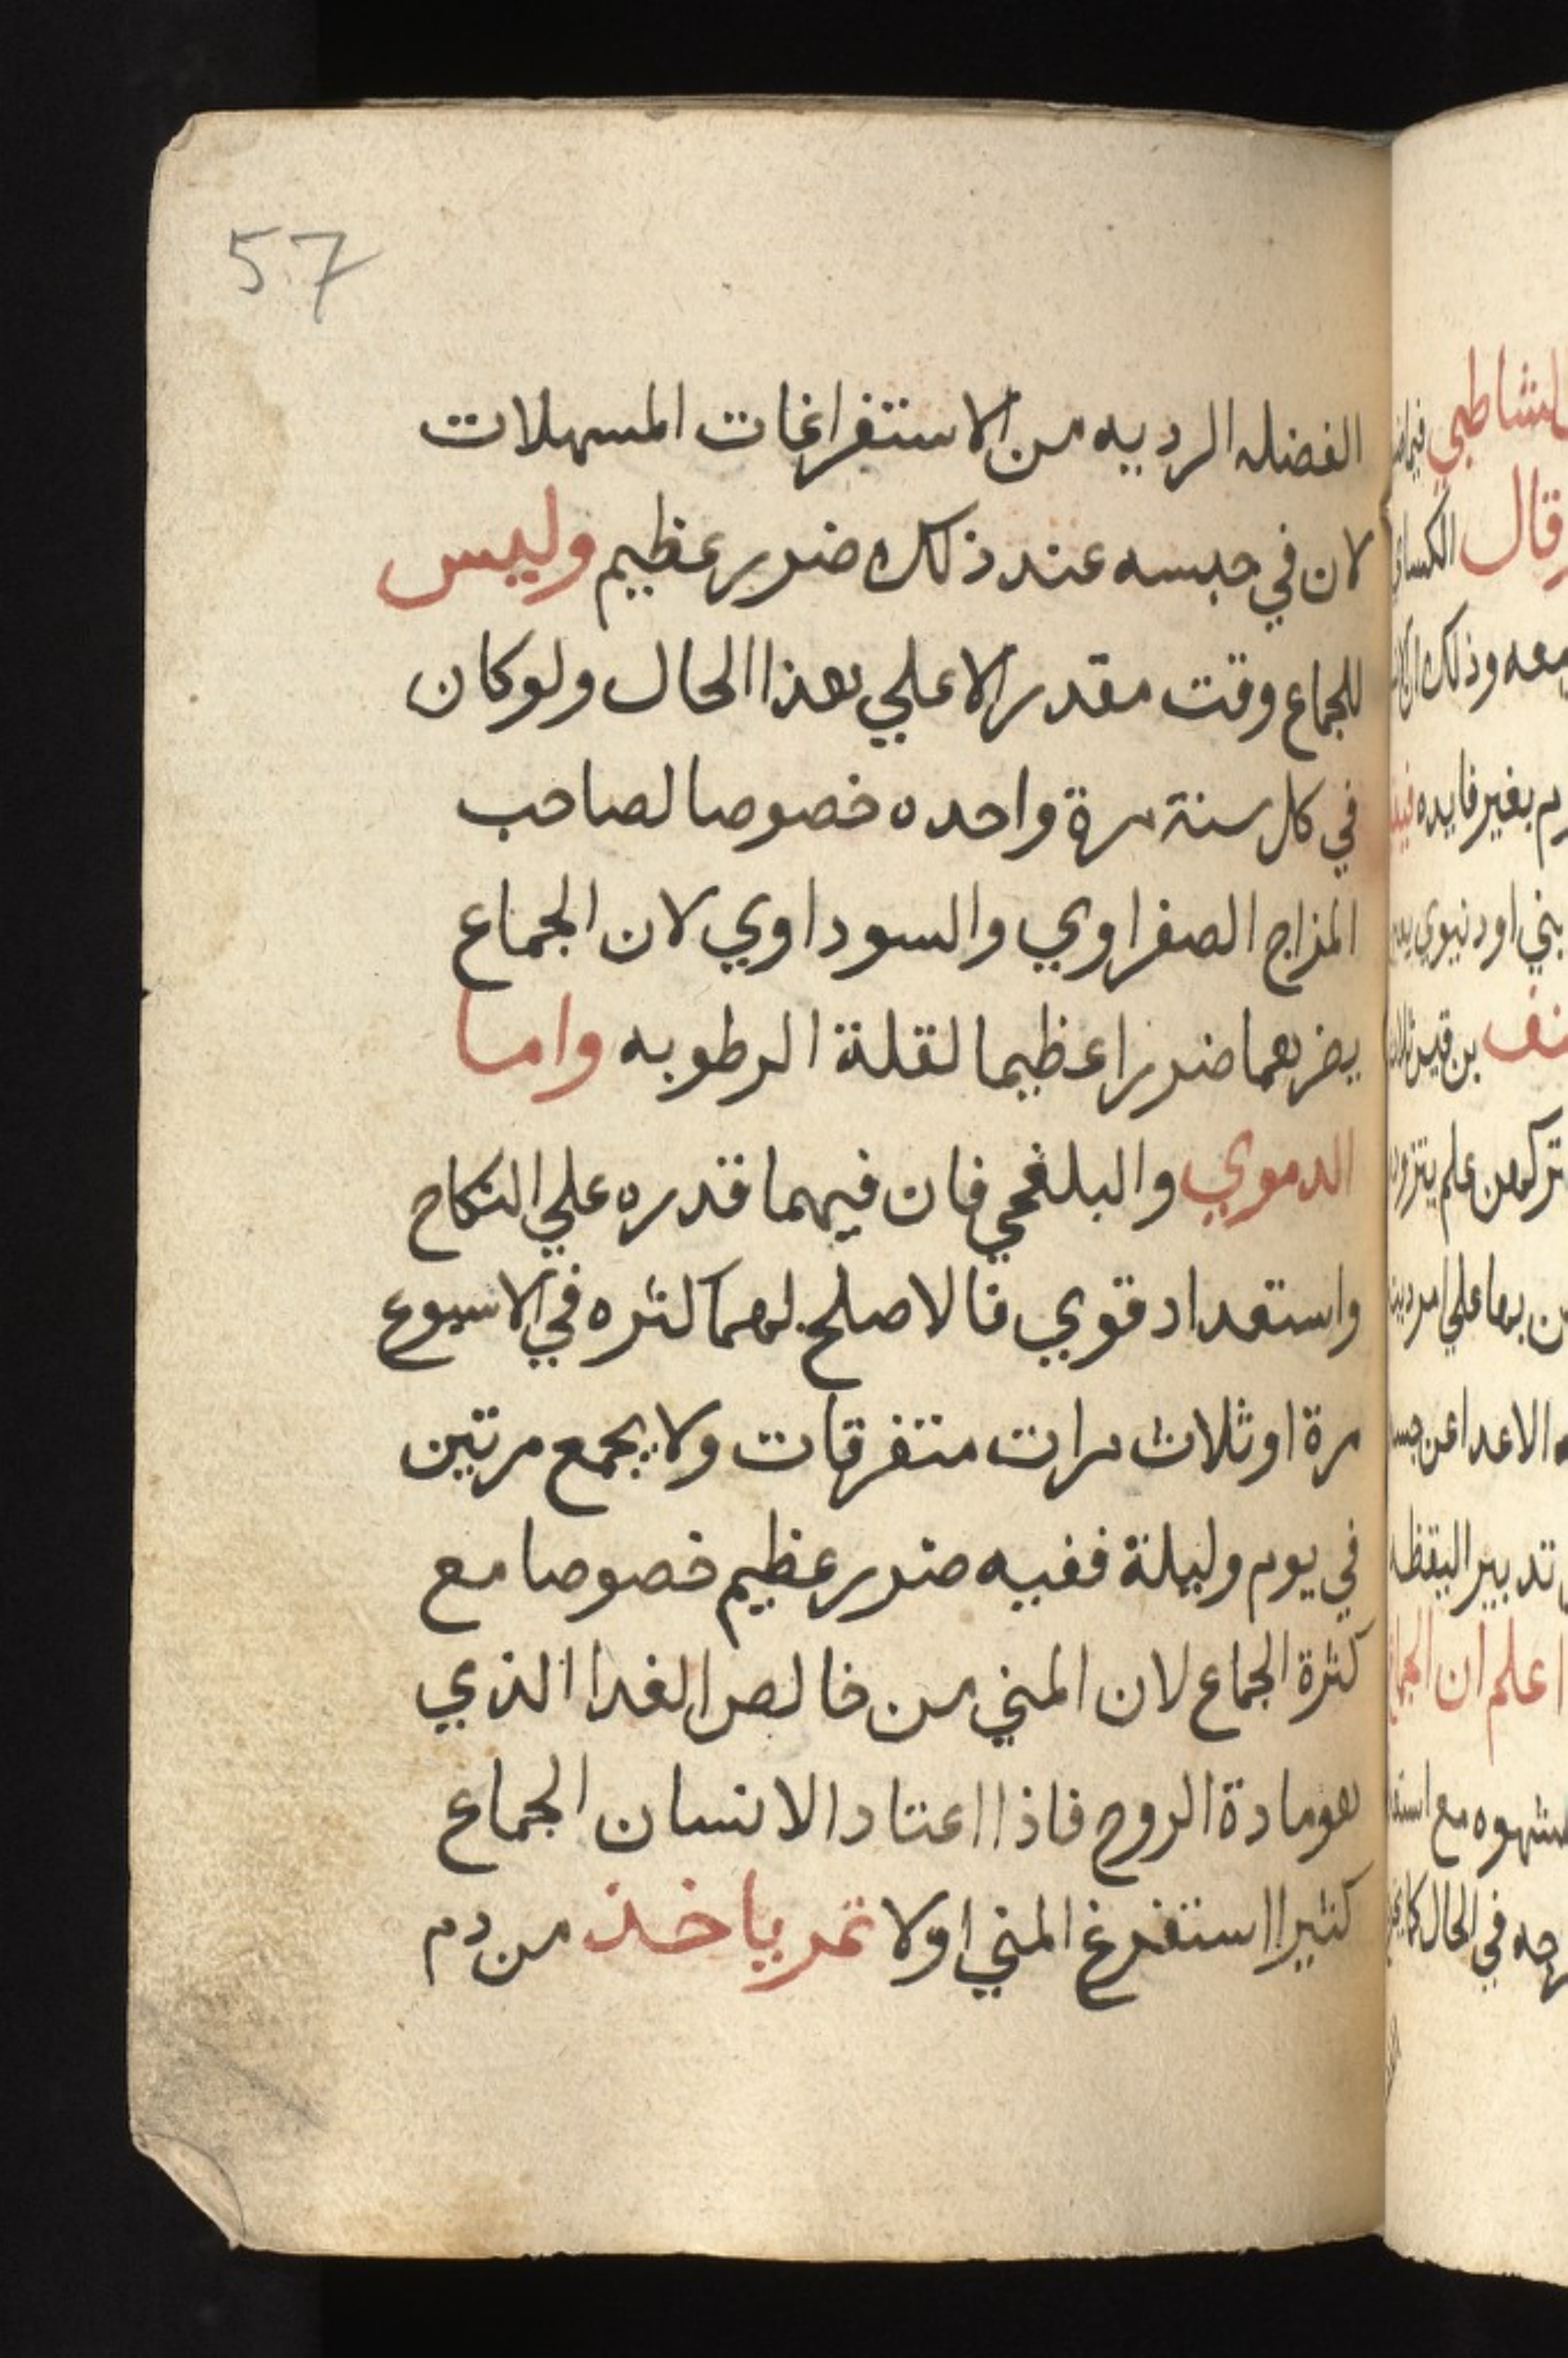 57
الفضله الرديه من الاستفراغات المسهلات
لان في حبسه عند ذلك ضرر عظيم وليس
للجماع وقت مقدر الا علي هذا الحال ولو كان
في كل سنة مرة واحده خصوصا لصاحب
المزاج الصفراوي والسوداوي لان الجماع
يضرهما ضررا عظيما لقلة الرطوبه واما
الدموي والبلغمي فان فيهما قدره علي النكاح
واستعداد قوي فالاصلح لهما كثره في الاسبوع
مرة او ثلاث مرات متفرقات ولا يجمع مرتين
في يوم وليلة ففيه ضرر عظيم خصوصا مع
كثرة الجماع لان المني من خالص الغدا الذي
هو مادة الروح فاذا اعتاد الانسان الجماع
كثيرا استفرغ المني اولا ثم ياخذ من دم